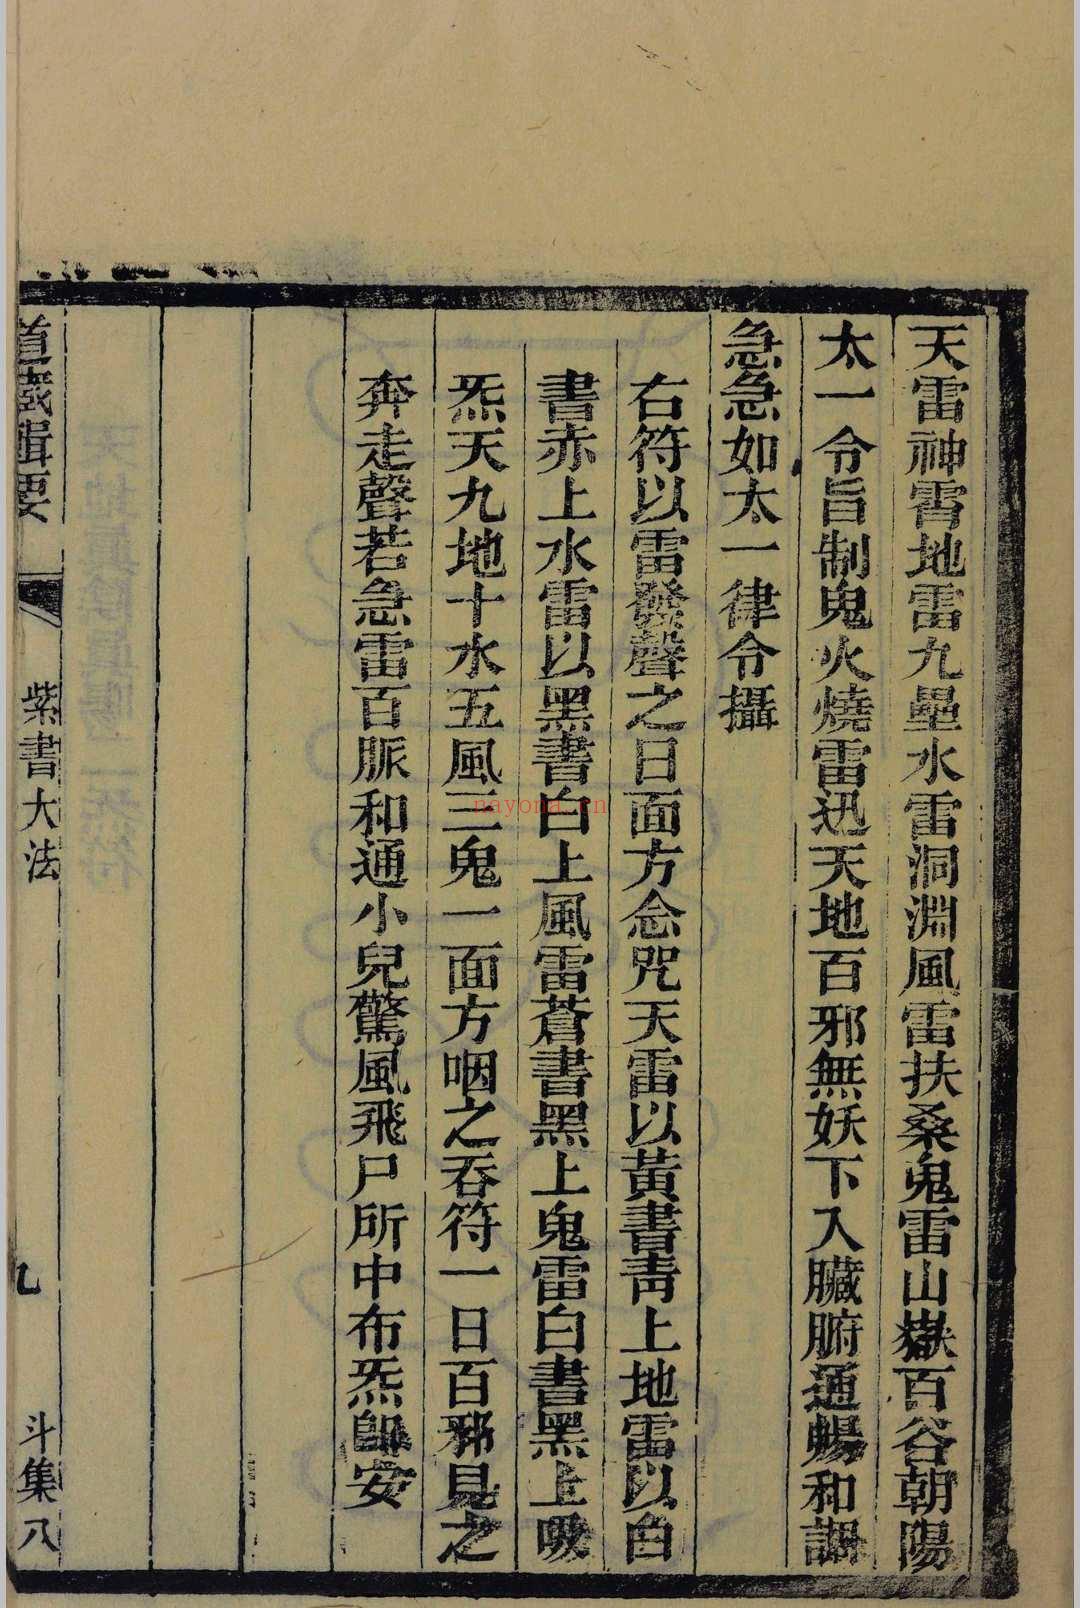 天雷神霄地雷九壘水雷洞淵風雷扶桑鬼雷山嶽百谷朝陽
太一令旨制鬼火燒雷迅天地百邪無妖下入臟腑通暢和調
急急如太一律令攝
右符以雷發聲之日面方念咒天雷以黃書青上地雷以白
書赤上水雷以黑書白上風雷蒼書黑上鬼雷白書黑上吸
炁天九地十水五風三鬼一面方咽之吞符一日百邪見之
奔走聲若急雷百脈和通小兒驚風飛尸所中布炁卽安
道藏輯要 紫書大法 九 斗集八
nayona.cn